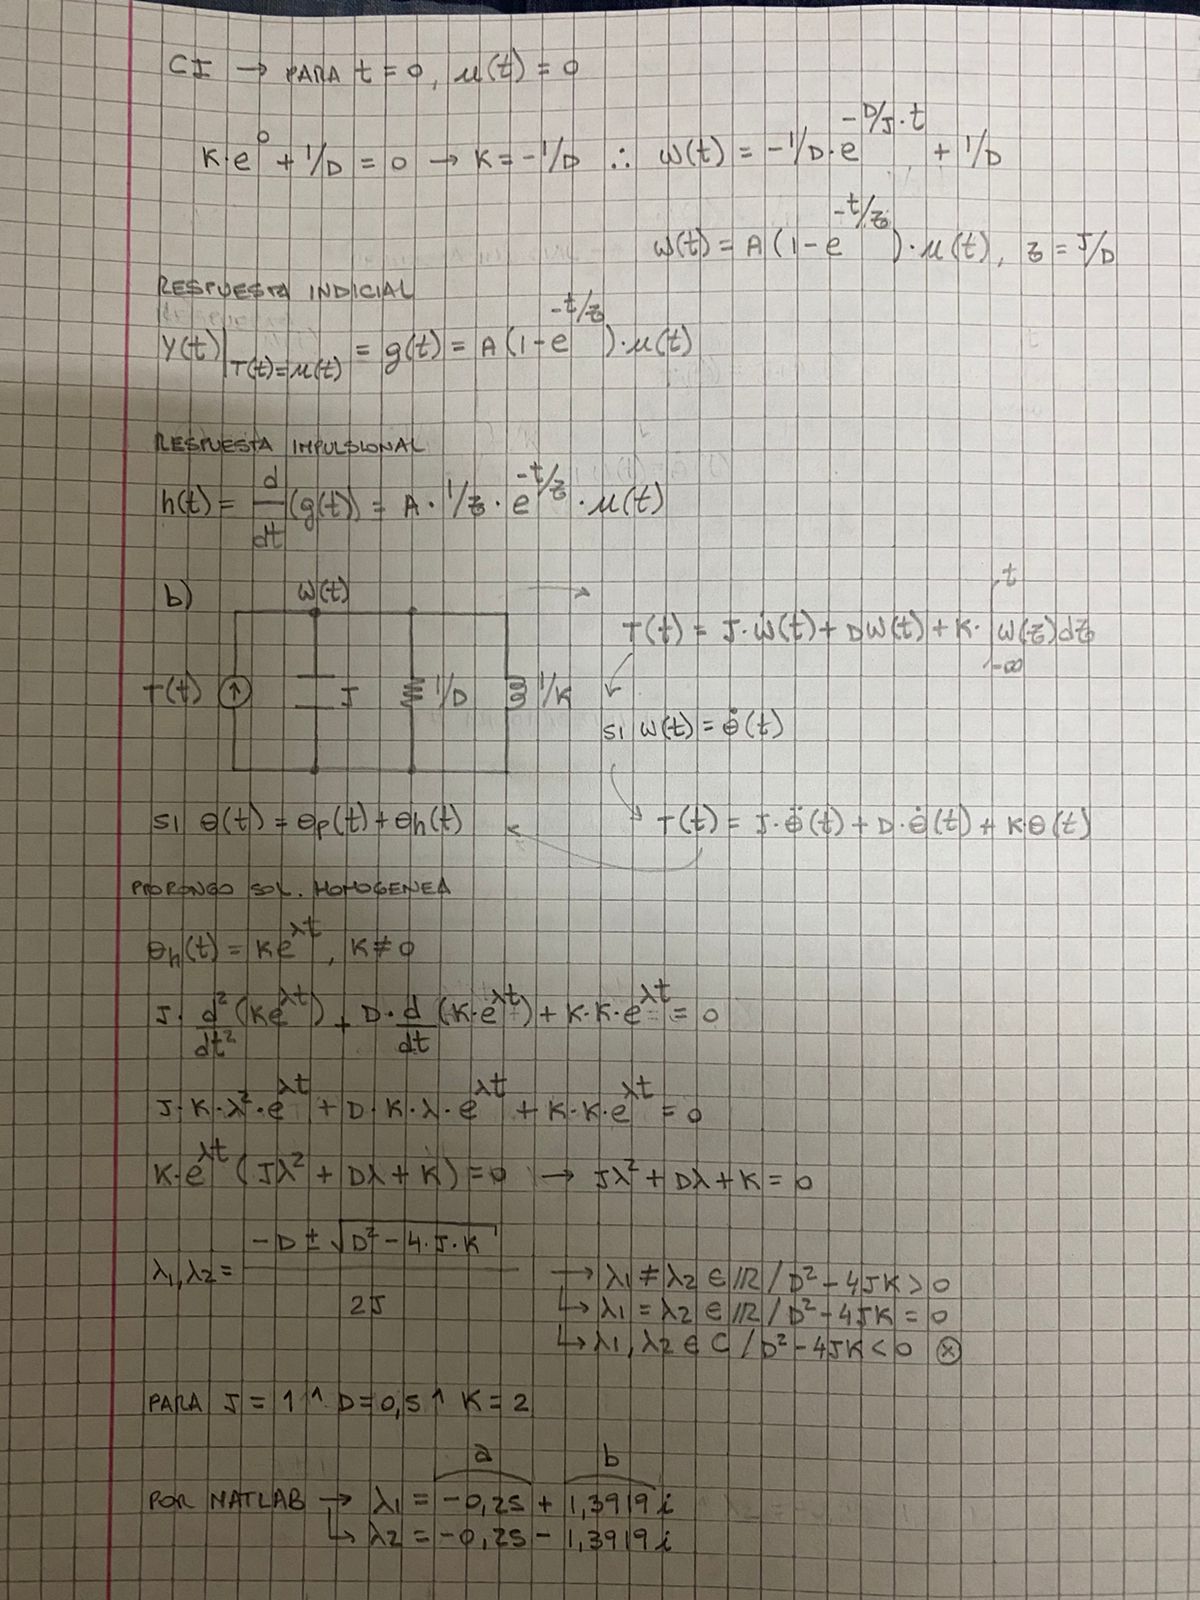 CI → PARA t = 0, μ(t) = 0
K·e^0 + 1/D = 0 → K = -1/D ∴ W(t) = -1/D·e^(-D/J·t) + 1/D
W(t) = A(1-e^(-t/z))·μ(t), z = J/D
RESPUESTA INDICIAL
Y(t)|T(t)=μ(t) = g(t) = A(1-e^(-t/z))·μ(t)
RESPUESTA IMPULSIONAL
h(t) = d/dt (g(t)) = A·1/z·e^(-t/z)·μ(t)
b)
W(t)
T(t) ↑ J 1/D 1/K
T(t) = J·Ẇ(t) + DW(t) + K·∫_{-∞}^{t} W(z)dz
SI W(t) = θ̇(t)
SI θ(t) = θp(t) + θh(t)
T(t) = J·θ̈(t) + D·θ̇(t) + Kθ(t)
PROPONGO SOL. HOMOGENEA
θh(t) = Ke^(λt), K ≠ 0
J·d²/dt²(Ke^(λt)) + D·d/dt(K·e^(λt)) + K·K·e^(λt) = 0
J·K·λ²·e^(λt) + D·K·λ·e^(λt) + K·K·e^(λt) = 0
K·e^(λt)(Jλ² + Dλ + K) = 0 → Jλ² + Dλ + K = 0
λ1, λ2 = (-D ± √(D² - 4·J·K)) / 2J
→ λ1 ≠ λ2 ∈ ℝ / D² - 4JK > 0
↳ λ1 = λ2 ∈ ℝ / D² - 4JK = 0
↳ λ1, λ2 ∈ C / D² - 4JK < 0 ⊗
PARA J = 1 ^ D = 0,5 ^ K = 2
a b
POR MATLAB → λ1 = -0,25 + 1,3919i
↳ λ2 = -0,25 - 1,3919i